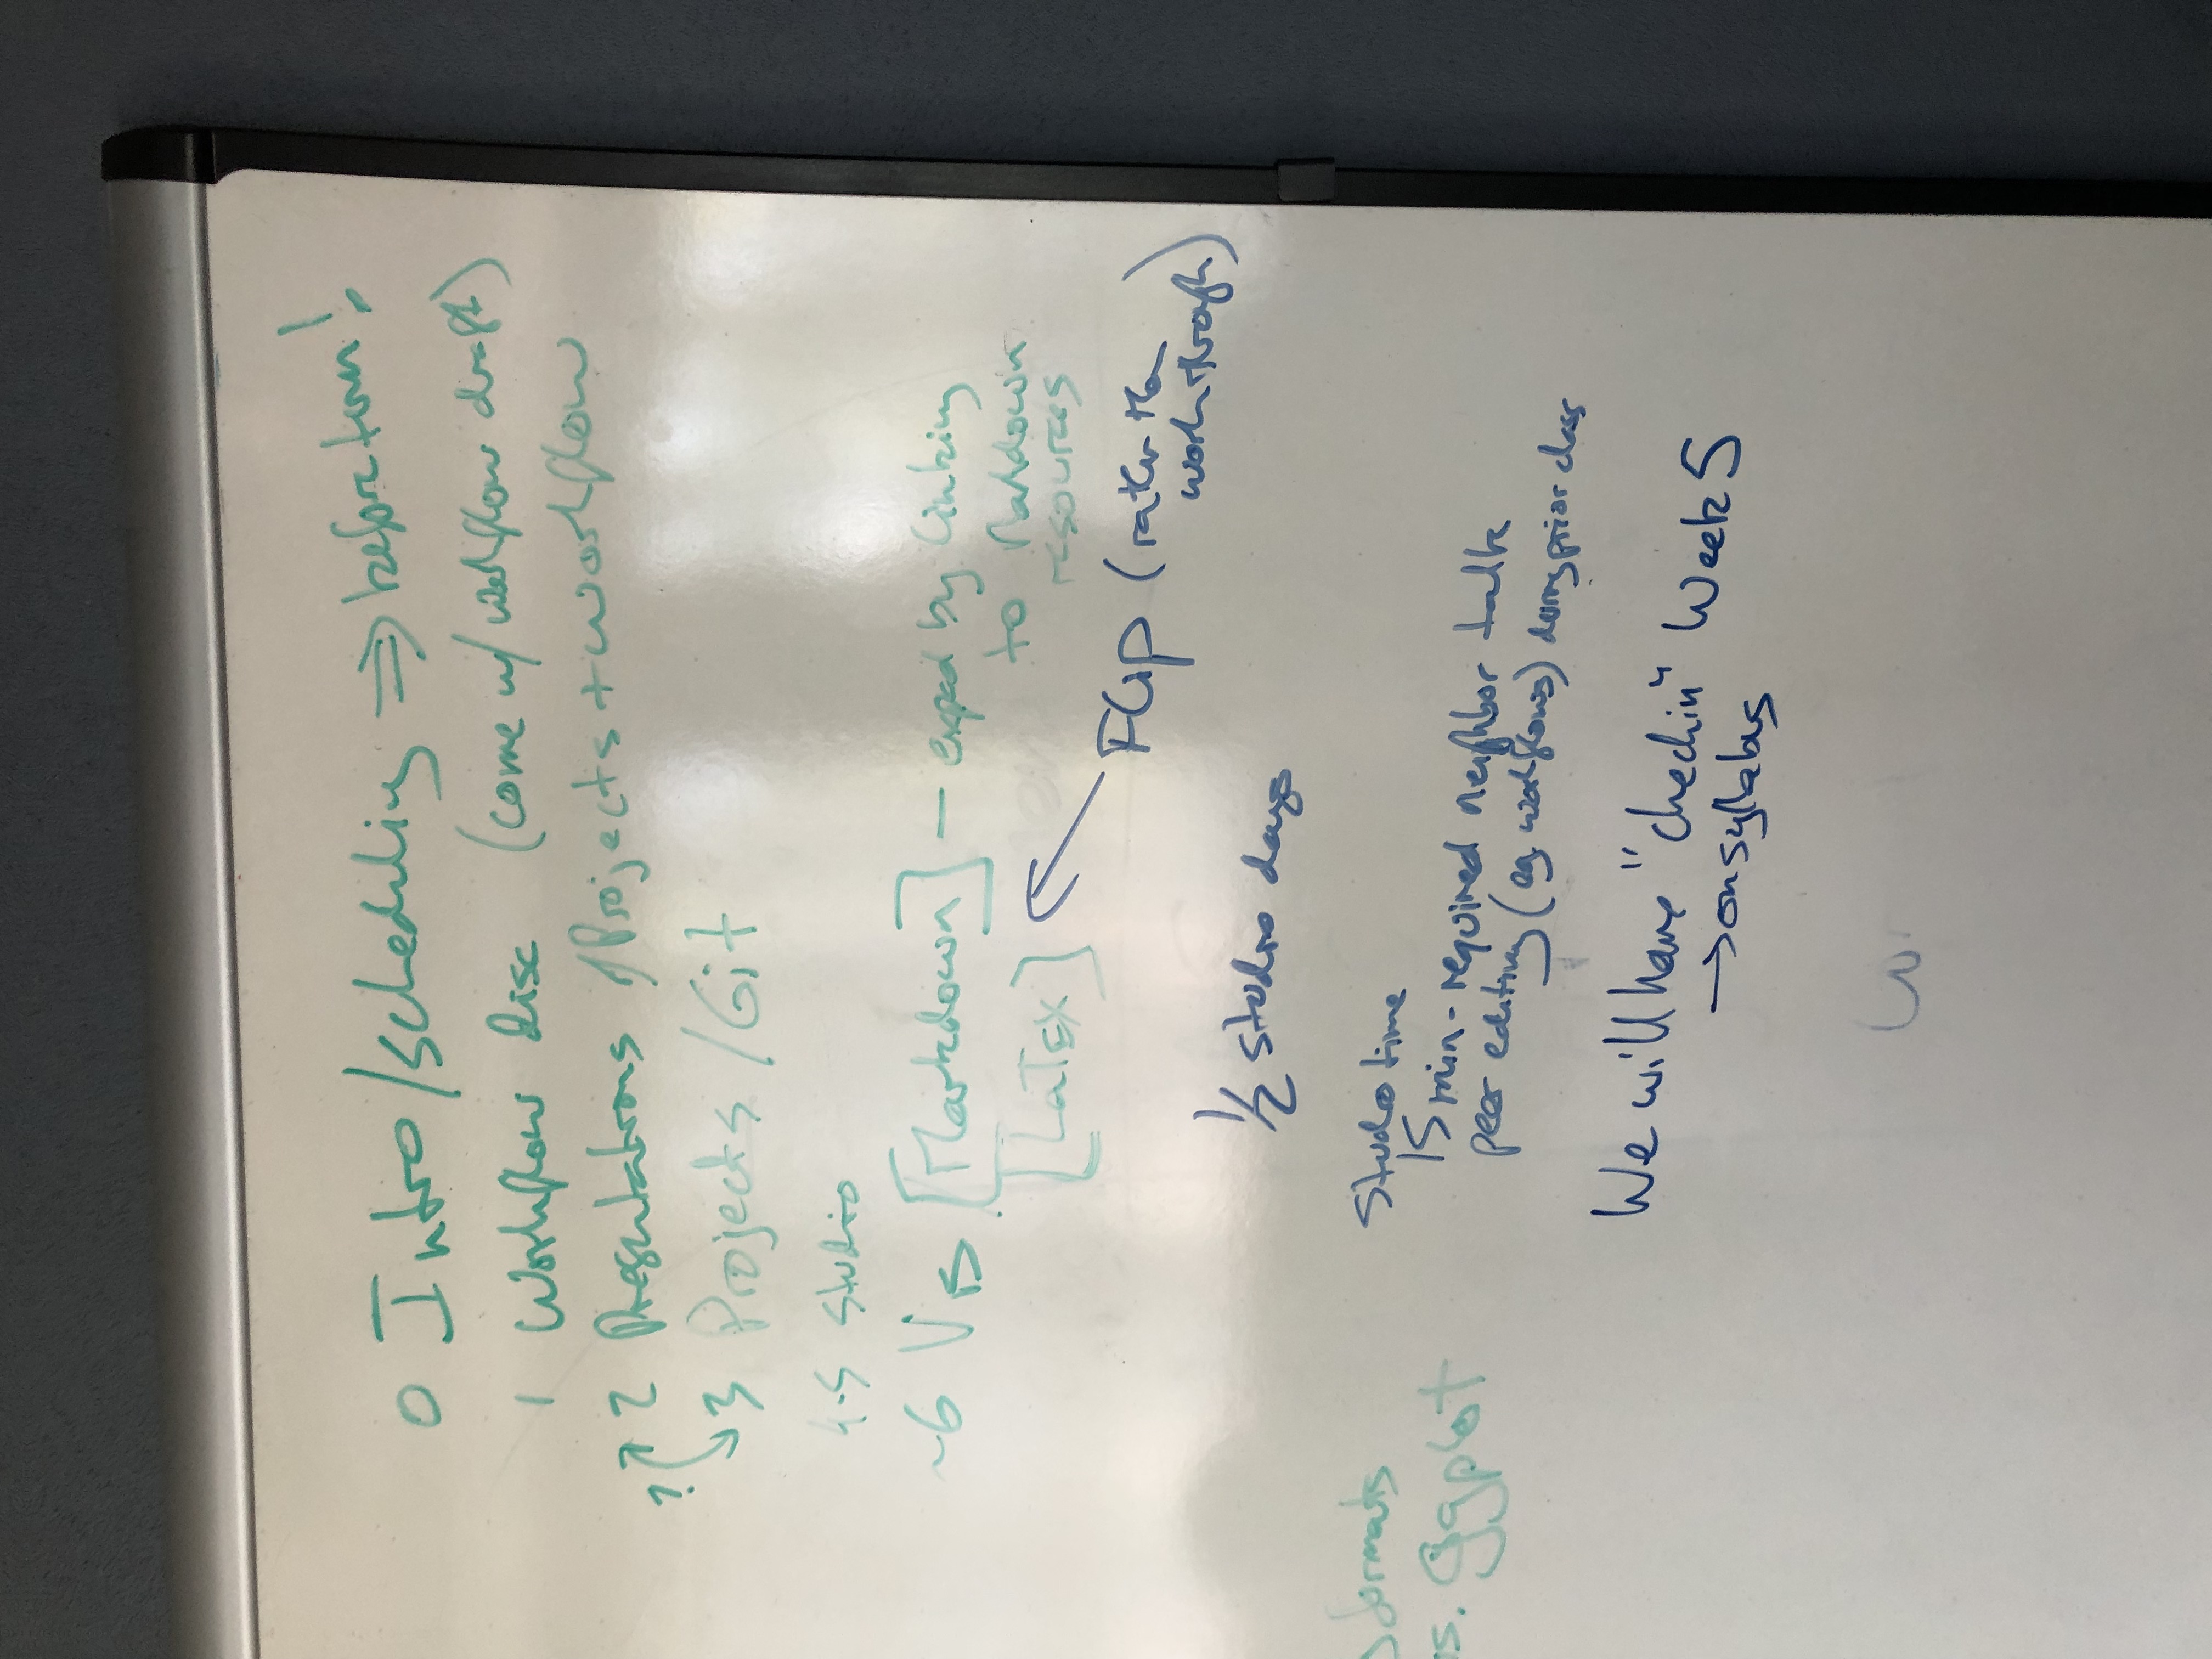 0 Intro/scheduling ⇒ before term!
1 Workflow Disc (come w/ workflow draft)
? 2 Presentations /Projects + workflow
3 Projects /Git
4.5 studio
~6 Vis [Markdown] — expand by linking
to Markdown
resources
[LaTeX]
Flip (rather than
work through)
1/2 studio days
formats
vs. ggplot
Studio time
15 min - required neighbor talk
peer editing (eg. workflows) during prior class
We will have "checkin" Week 5
→ on syllabus